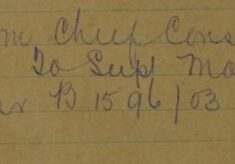 m Chief Cons
To Supt Mo
r B 1596/03